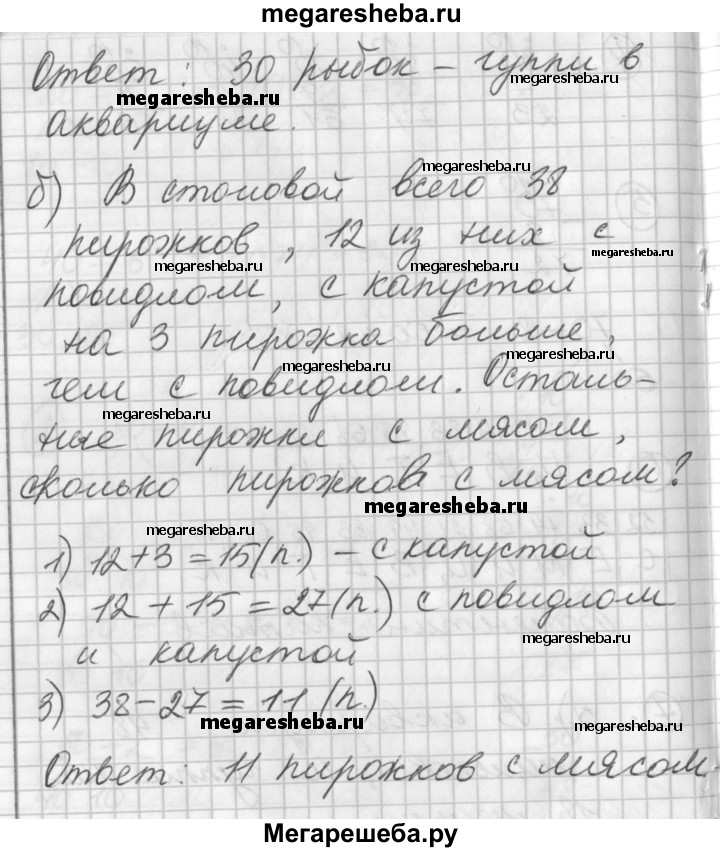 megaresheba.ru
Ответ: 30 рыбок – гуппи в
megaresheba.ru
megaresheba.ru
аквариуме.
megaresheba.ru
б) В столовой всего 38
пирожков, 12 из них с
megaresheba.ru
megaresheba.ru
повидлом, с капустой
на 3 пирожка больше,
megaresheba.ru
megaresheba.ru
чем с повидлом. Осталь-
megaresheba.ru
ные пирожки с мясом,
сколько пирожков с мясом?
megaresheba.ru
megaresheba.ru
1) 12+3=15(п.) – с капустой
2) 12+15=27(п.) с повидлом
megaresheba.ru
и капустой
3) 38–27=11 (п.)
megaresheba.ru
megaresheba.ru
Ответ: 11 пирожков с мясом.
Мегарешеба.ру